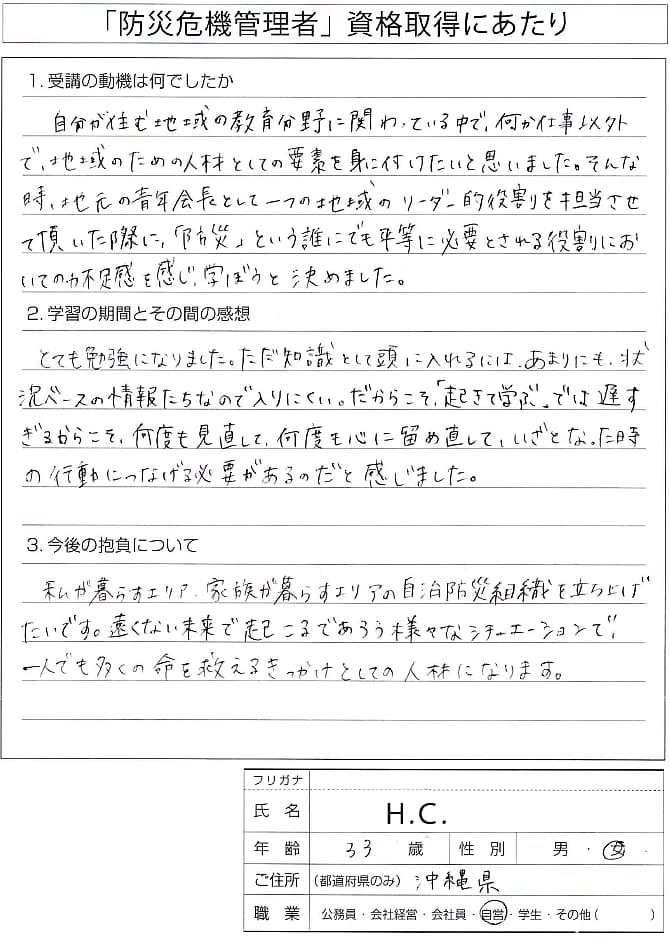 「防災危機管理者」資格取得にあたり
1. 受講の動機は何でしたか
自分が住む地域の教育分野に関わっている中で、何か仕事以外
で、地域のための人材としての要素を身に付けたいと思いました。そんな
時、地元の青年会長として一つの地域のリーダー的役割を担当させ
て頂いた際に、「防災」という誰にでも平等に必要とされる役割にお
いての力不足感を感じ、学ぼうと決めました。
2. 学習の期間とその間の感想
とても勉強になりました。ただ知識として頭に入れるには、あまりにも、状
況ベースの情報たちなので入りにくい。だからこそ、「起きて学ぶ」では遅す
ぎるからこそ、何度も見直して、何度も心に留め直して、いざとなった時
の行動につなげる必要があるのだと感じました。
3. 今後の抱負について
私が暮らすエリア、家族が暮らすエリアの自治防災組織を立ち上げ
たいです。遠くない未来で起こるであろう様々なシチュエーションで、
一人でも多くの命を救えるきっかけとしての人材になります。
フリガナ
氏名 H.C.
年齢 33 歳 性別 男・女
ご住所 (都道府県のみ) 沖縄県
職業 公務員・会社経営・会社員・自営・学生・その他( )